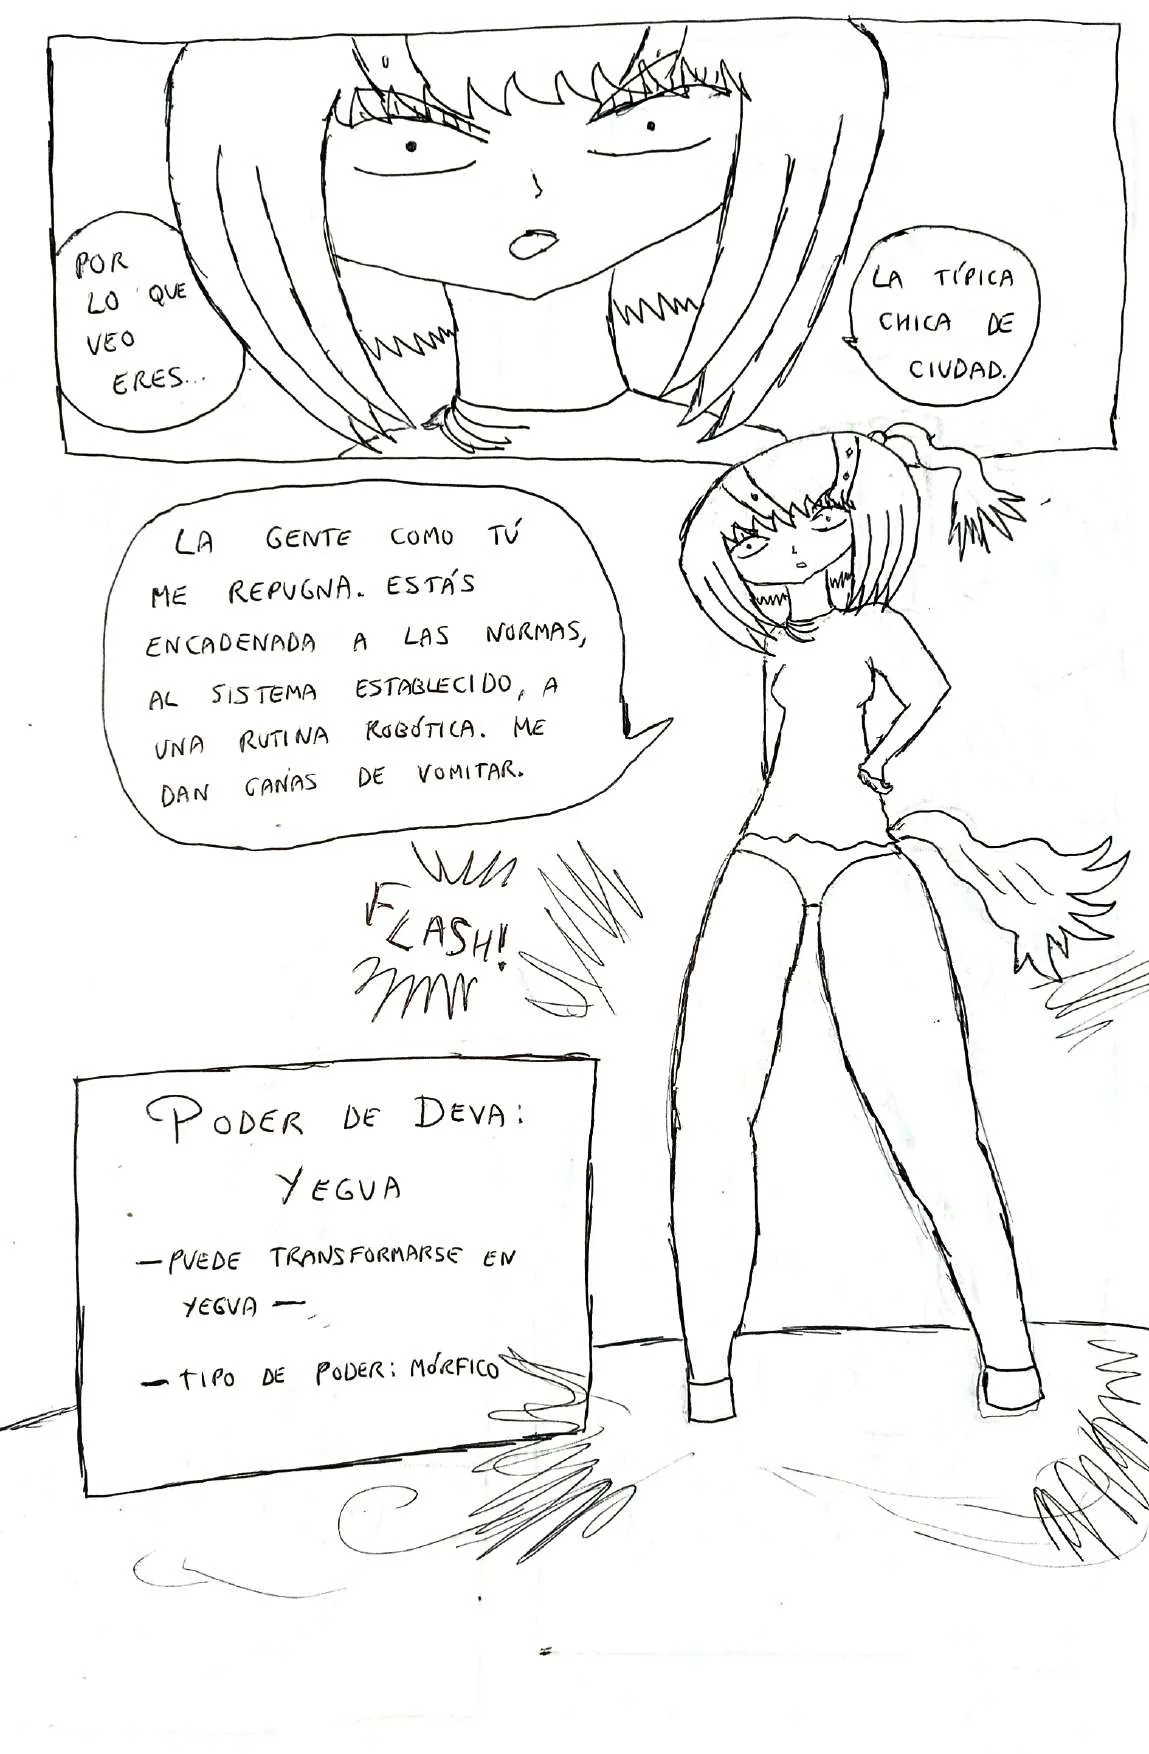 POR
LO QUE
VEO
ERES...
LA TÍPICA
CHICA DE
CIUDAD.
LA GENTE COMO TÚ
ME REPUGNA. ESTÁS
ENCADENADA A LAS NORMAS,
AL SISTEMA ESTABLECIDO, A
UNA RUTINA ROBÓTICA. ME
DAN GANAS DE VOMITAR.
FLASH!
PODER DE DEVA:
YEGUA
— PUEDE TRANSFORMARSE EN
YEGUA —
— TIPO DE PODER: MÓRFICO